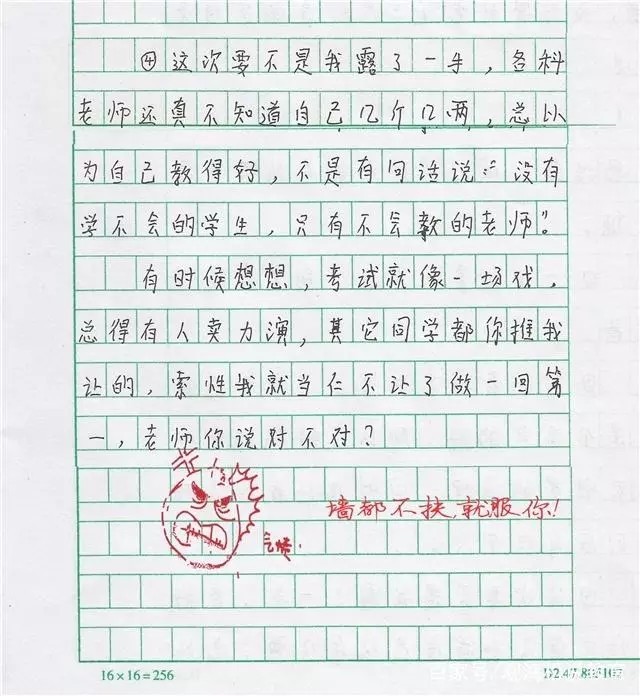 ④这次要不是我露了一手，各科
老师还真不知道自己几个几两，总以
为自己教得好，不是有句话说：“没有
学不会的学生，只有不会教的老师”。
有时候想想，考试就像一场戏，
总得有人卖力演，其它同学都你推我
让的，索性我就当仁不让了做一回第
一，老师你说对不对？
墙都不扶就服你！
气愤.
16×16=256